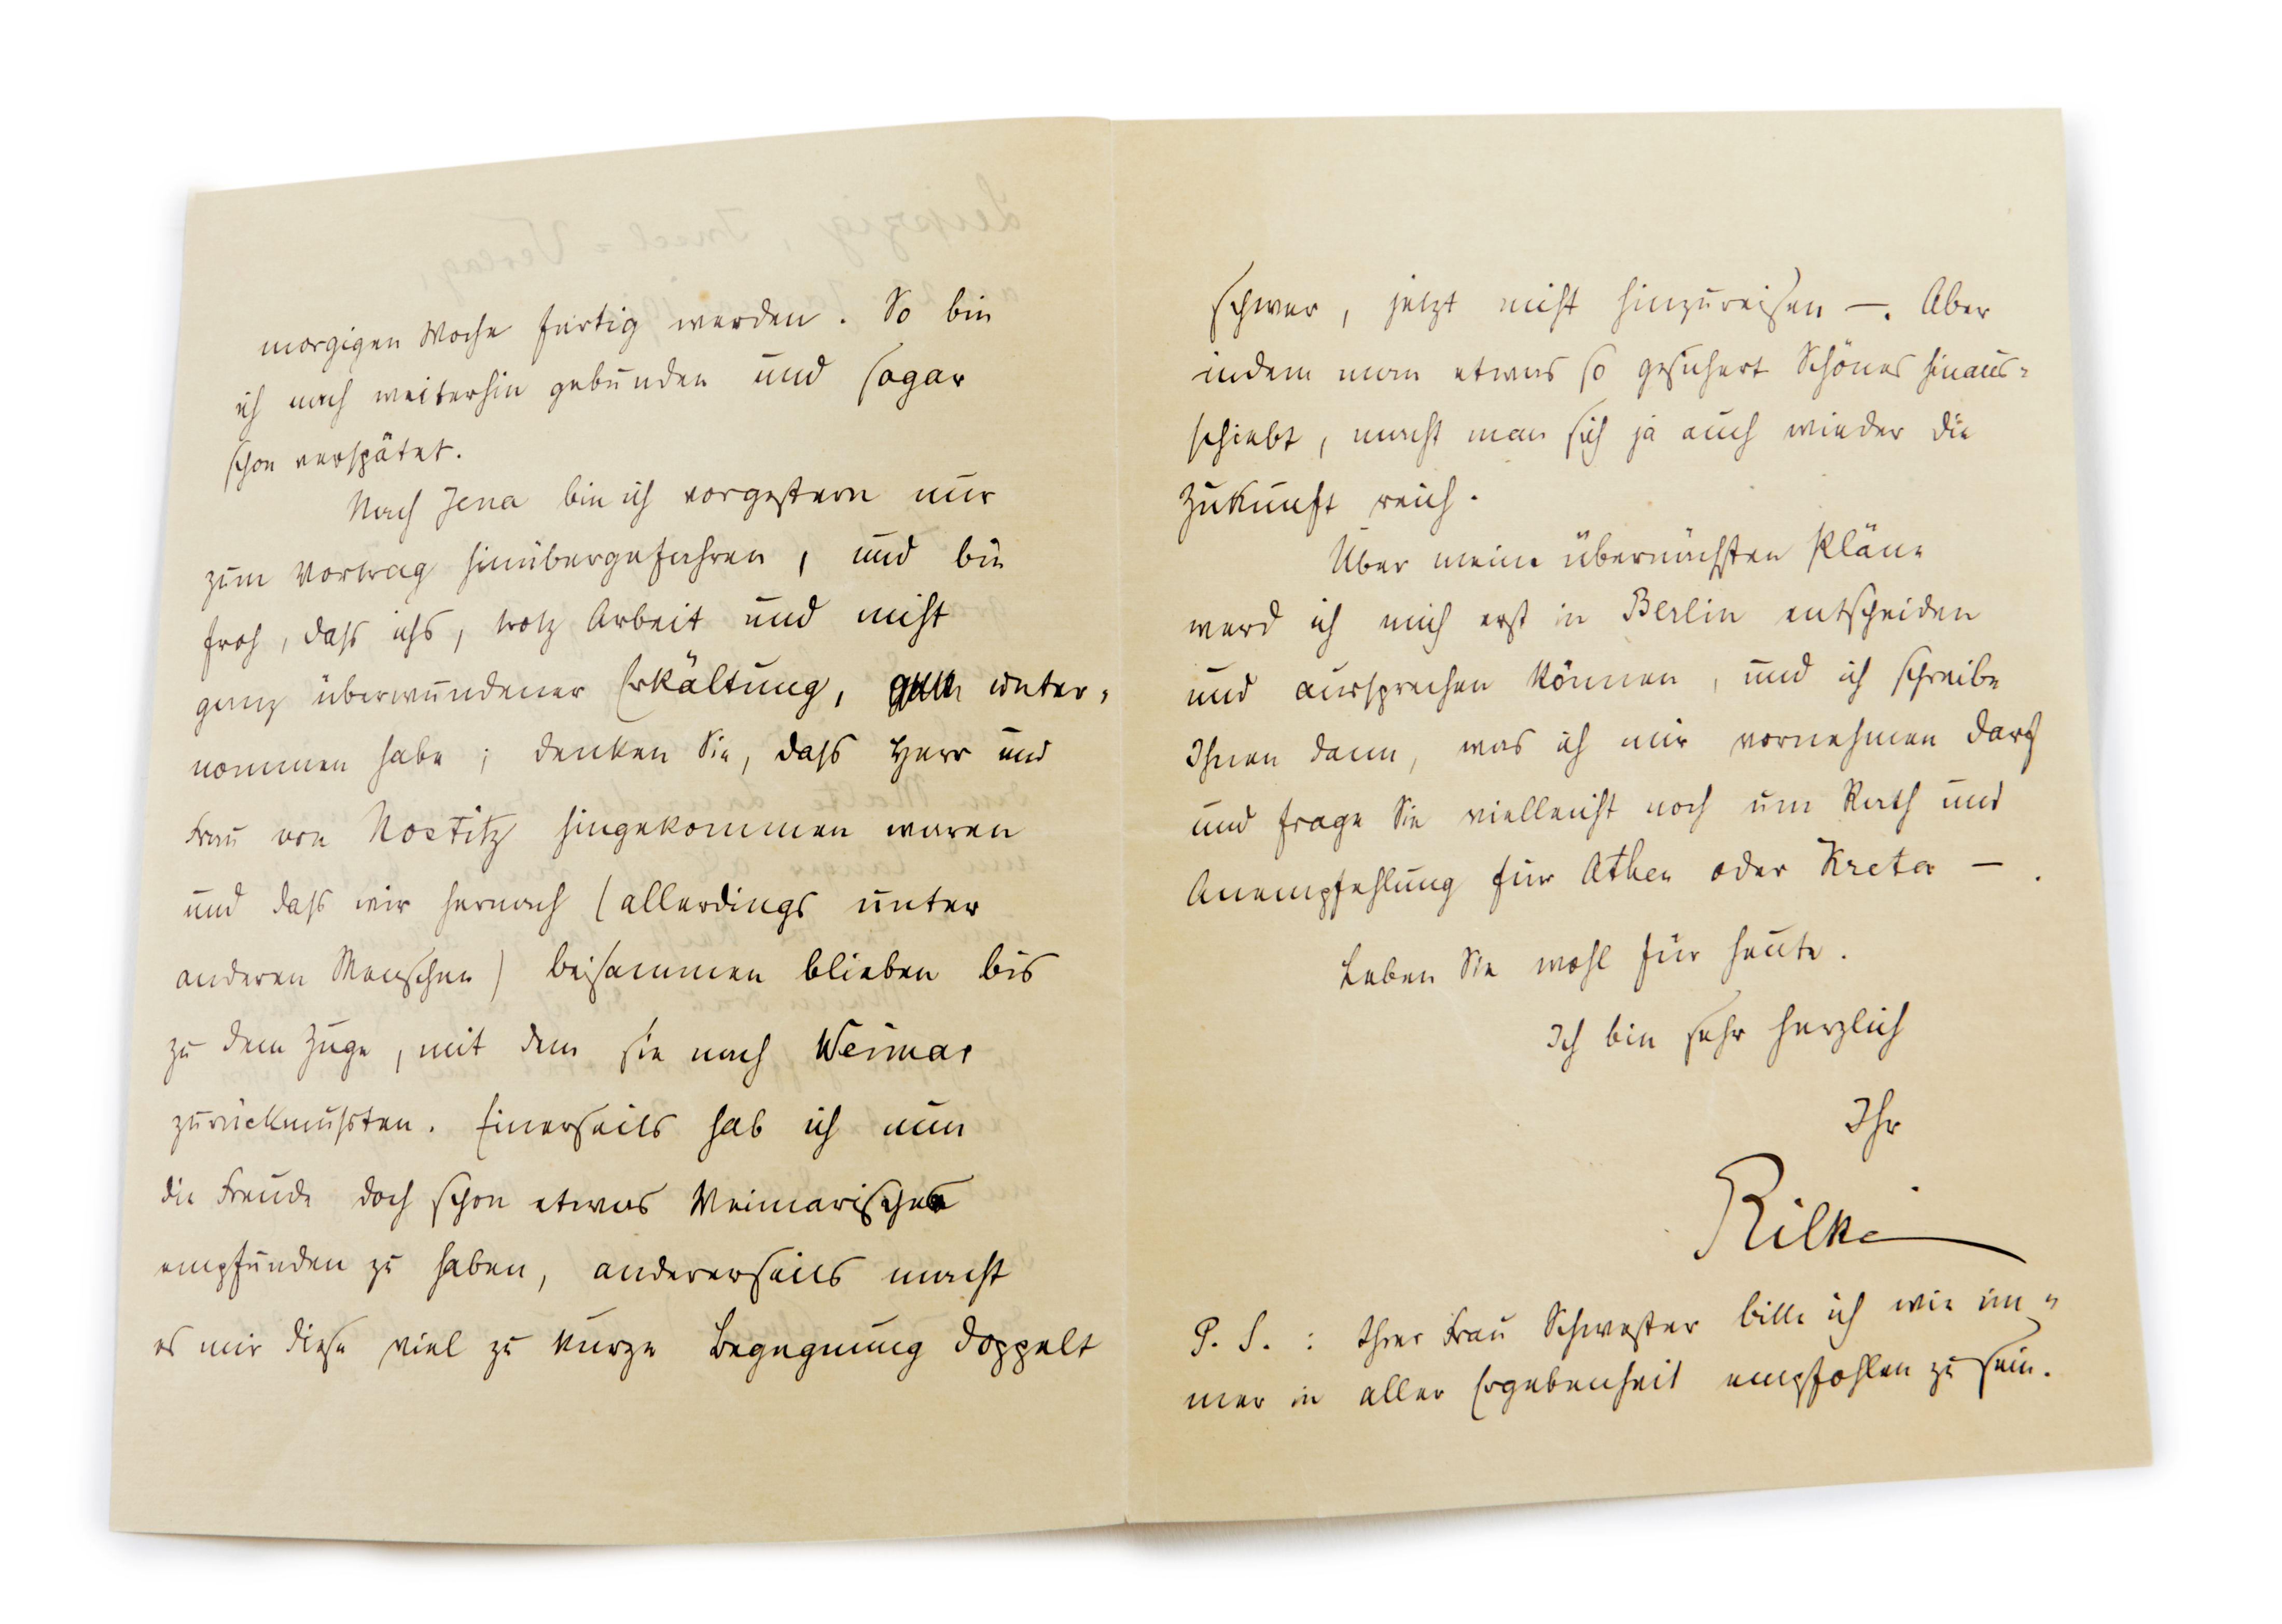 morgigen Woche fertig werden. So bin
ich noch weiterhin gebunden und sogar
schon verspätet.
Nach Jena bin ich vorgestern nur
zum Vortrag hinübergefahren, und bin
froh, dass ichs, trotz Arbeit und nicht
ganz überwundener Erkältung, unter-
nommen habe; denken Sie, dass Herr und
Frau von Nostitz hingekommen waren
und dass wir hernach (allerdings unter
anderen Menschen) beisammen blieben bis
zu dem Zuge, mit dem sie nach Weimar
zurückmussten. Einerseits hab ich nun
die Freude doch schon etwas Weimarisches
empfunden zu haben, andererseits macht
es mir diese viel zu kurze Begegnung doppelt
schwer, jetzt nicht hinzureisen –. Aber
indem man etwas so gesichert Schönes hinaus-
schiebt, macht man sich ja auch wieder die
Zukunft reich.
Über meine übernächsten Pläne
werd ich mich erst in Berlin entscheiden
und aussprechen können, und ich schreibe
Ihnen dann, was ich mir vornehmen darf
und frage Sie vielleicht noch um Rath und
Anempfehlung für Athen oder Kreta –.
Leben Sie wohl für heute.
Ich bin sehr herzlich
Ihr
Rilke
P. S.: Ihrer Frau Schwester bitte ich wie im-
mer in aller Ergebenheit empfohlen zu sein.
Leipzig, Insel-Verlag,